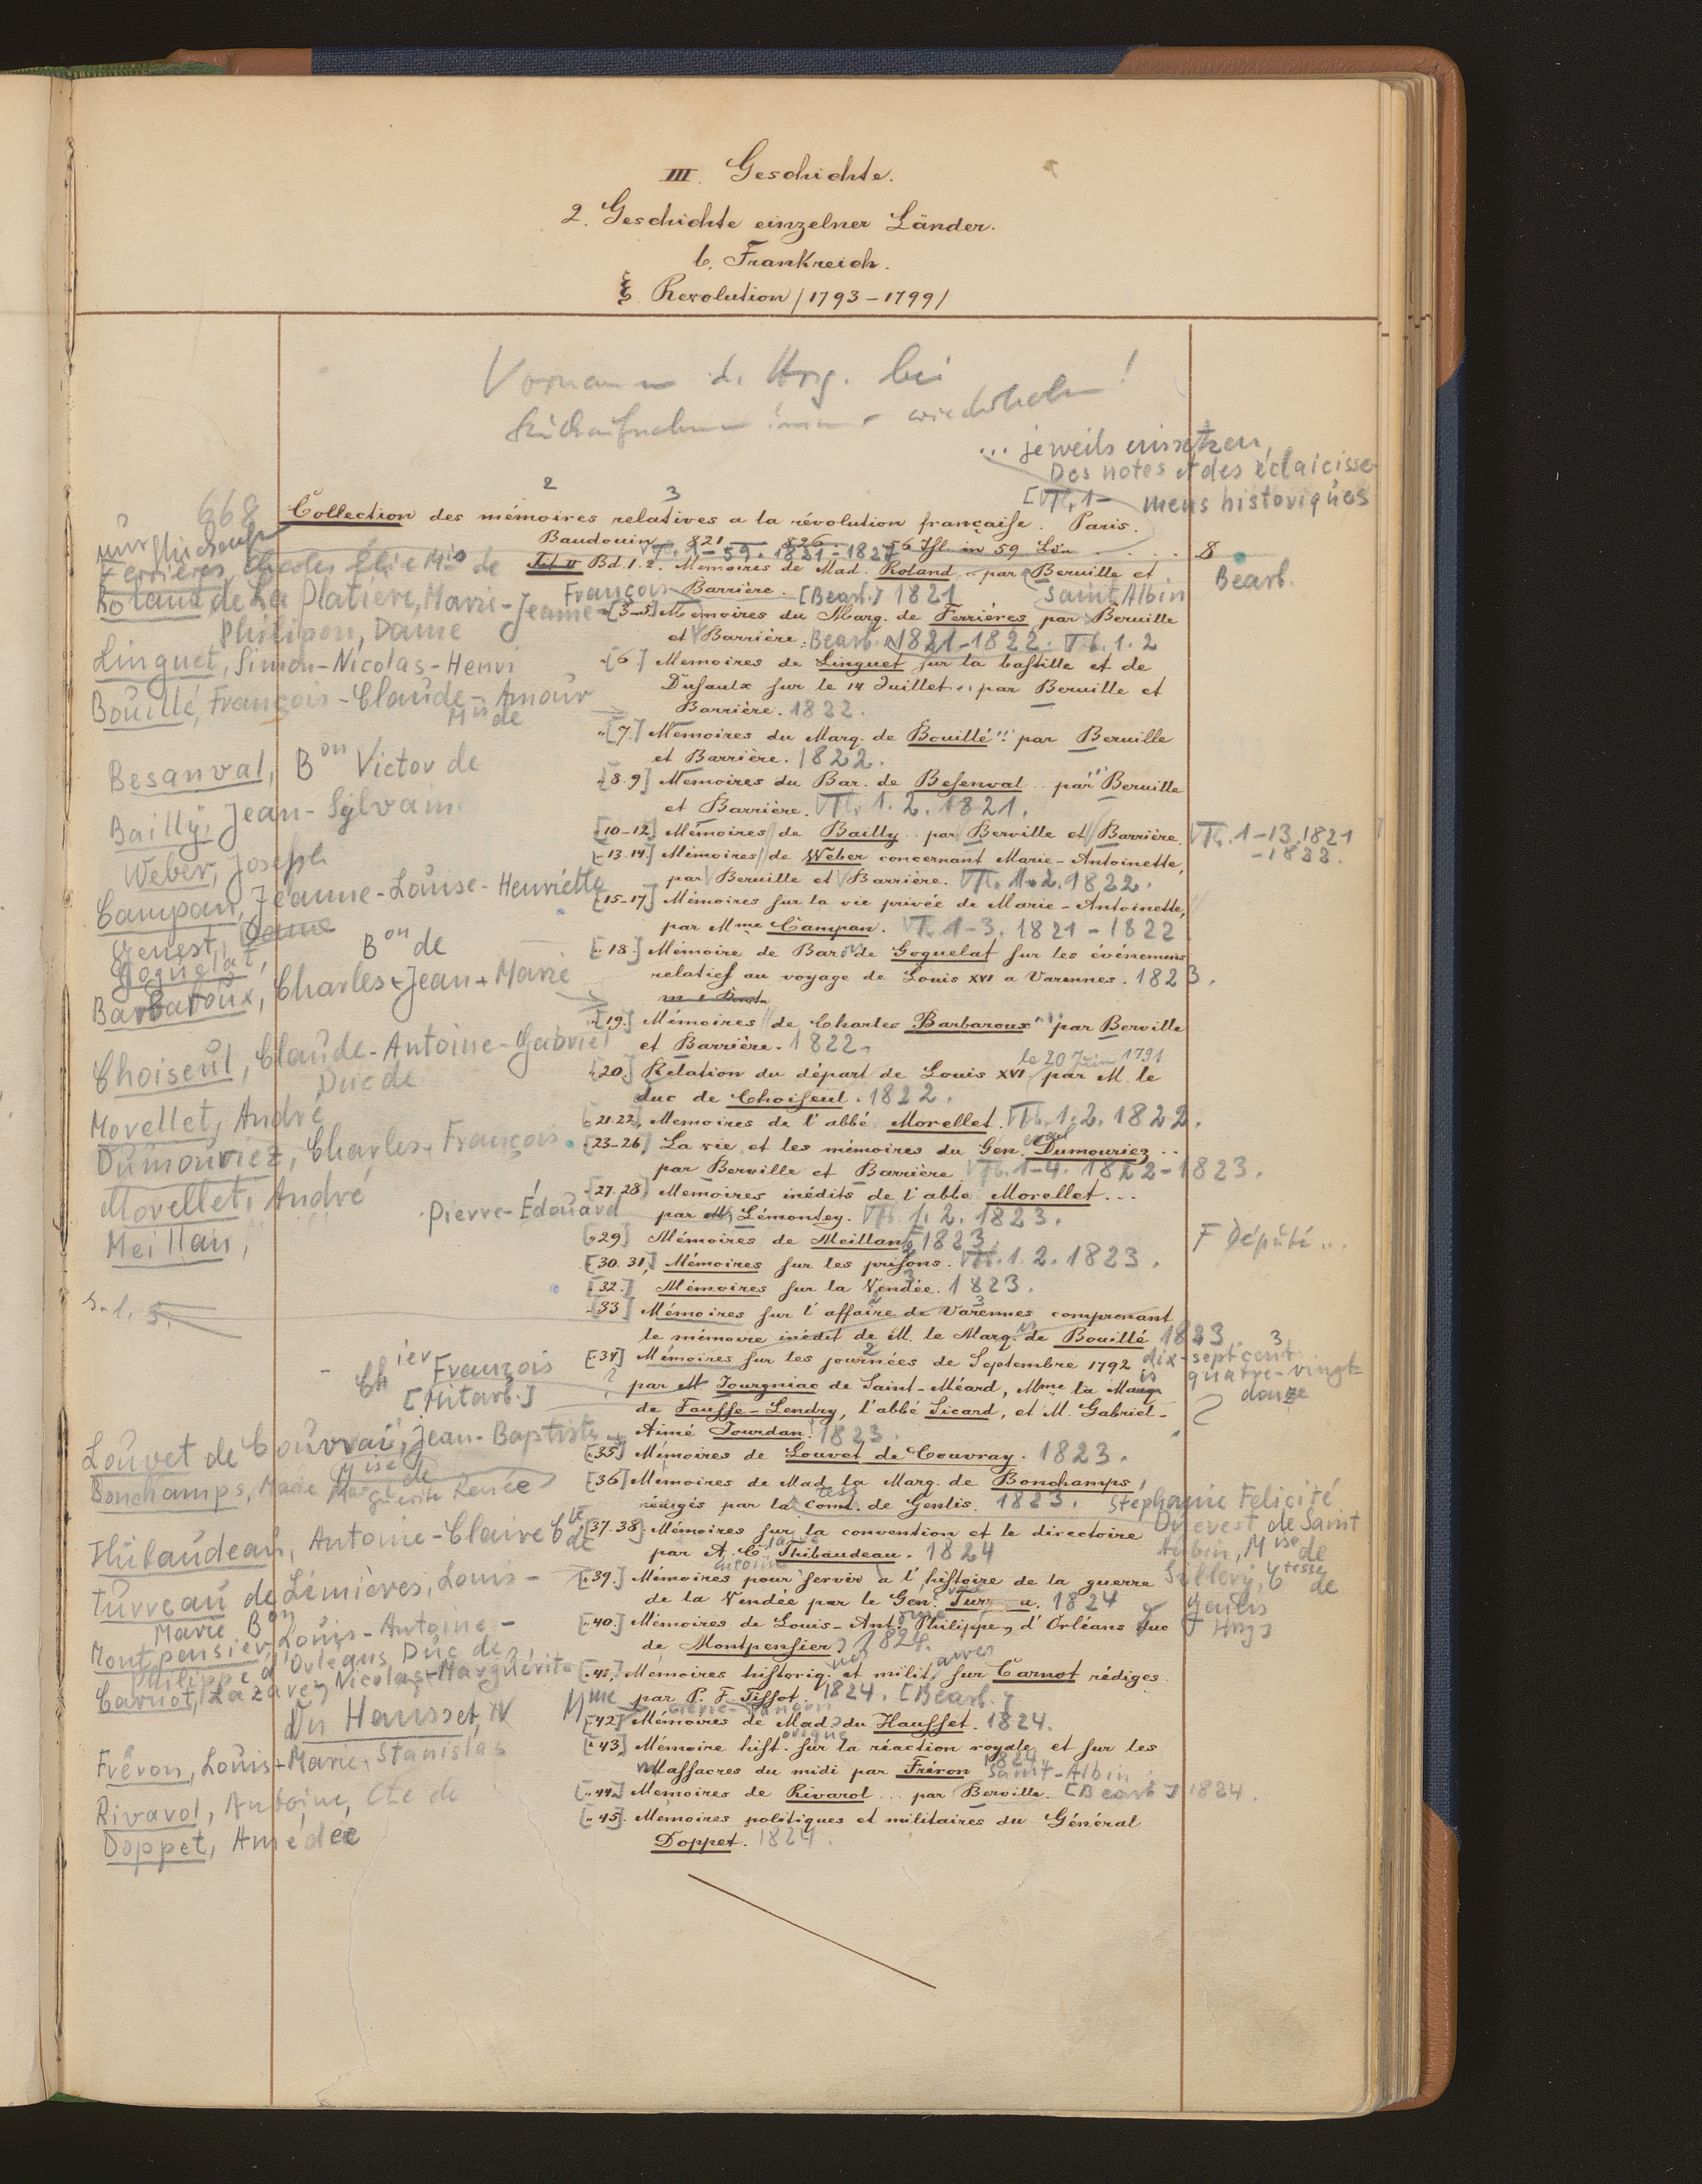 III. Geschichte.
2. Geschichte einzelner Länder.
b. Frankreich.
ξ. Revolution /1793-1799/
Vornamen d. Hrsg. bei
immer wiederholen!
... jeweils einsetzen,
Des notes et des éclaicisse-
mens historiques
[Tl. 1-
2 3
668 Collection des mémoires relatives a la révolution française. Paris.
Baudouin 821 — 826. 56 Thl. in 59 Bdn. . . . . 8
Tl. 1-59. 1821-1827
Ferrières, Charles Élie Mis de
Tit II Bd. 1.2. Memoires de Mad. Roland .. par Berville et
Bearb.
Roland de La Platière, Marie-Jeanne
François Barrière. [Bearb.] 1821 Saint Albin
Philipon, Dame
[3-5] Memoires du Marq. de Ferrières par Berville
et Barrière. Bearb. 1821-1822. Tl. 1.2
Linguet, Simon-Nicolas-Henri
[6] Memoires de Linguet sur la bastille et de
Dusaulx sur le 14 Juillet .. par Berville et
Barrière. 1822.
Bouillé, François-Claude-Amour
Mis de
[7.] Memoires du Marq. de Bouillé .. par Berville
et Barrière. 1822.
Besanval, Bon Victor de
[8.9] Memoires du Bar. de Besenval .. par Berville
et Barrière. Tl. 1.2. 1821.
Bailly, Jean-Sylvain
[10-12] Mémoires de Bailly .. par Berville et Barrière. Tl. 1-13. 1821
-1822.
Weber, Joseph
[13.14.] Mémoires de Weber concernant Marie-Antoinette,
par Berville et Barrière. Tl. 1.2. 1822.
Campan, Jeanne-Louise-Henriette
Genest, Dame
[15-17] Mémoires sur la vie privée de Marie-Antoinette,
par Mme Campan. Tl. 1-3. 1821-1822
Goguelat, Bon de
[18.] Mémoire de Baron de Goguelat sur les événemens
relatifs au voyage de Louis XVI a Varennes. 1823.
Barbaroux, Charles-Jean-Marie
[19.] Mémoires de Charles Barbaroux .. par Berville
et Barrière. 1822.
Choiseul, Claude-Antoine-Gabriel
Duc de
le 20 Juin 1791
[20.] Relation du départ de Louis XVI par M. le
duc de Choiseul. 1822.
Morellet, André
[21.22.] Memoires de l'abbé Morellet. Tl. 1.2. 1822.
Dumouriez, Charles-François
[23-26] La vie et les mémoires du Gen. Dumouriez ..
par Berville et Barrière Tl. 1-4. 1822-1823.
Morellet, André
[27.28] Memoires inédits de l'abbe Morellet ...
Pierre-Édouard par M. Lémontey. Tl. 1.2. 1823.
Meillan,
[29] Mémoires de Meillan 1823. F Député ..
[30.31.] Mémoires sur les prisons. Tl. 1.2. 1823.
[32.] Mémoires sur la Vendée. 1823.
s. l. s.
[33] Mémoires sur l'affaire de Varennes comprenant
le mémoire inédit de M. le Marq. de Bouillé 1823.
[34] Mémoires sur les journées de Septembre 1792 dix-sept cent
quatre-vingt-
douze
Chier François
[Mitarb.]
par M. Jourgniac de Saint-Méard, Mme la Marq.
de Fausse-Lendry, l'abbé Sicard, et M. Gabriel-
Aimé Jourdan. 1823.
Louvet de Couvrai, Jean-Baptiste
[35] Mémoires de Louvet de Couvray. 1823.
Bonchamps, Marie Marguerite Renée
Mise de
[36] Mémoires de Mad. la Marq. de Bonchamps,
rédigés par la Comt. de Genlis. 1823. Stéphanie Felicité
Ducrest de Saint
Aubin, Mise de
Sillery, Ctesse de
Genlis
Hrsg]
Thibaudeau, Antoine-Claire Cte de
[37.38] Mémoires sur la convention et le directoire
par A. C. Thibaudeau. 1824
Turreau de Linières, Louis-
Marie Bon
[39.] Mémoires pour servir a l'histoire de la guerre
de la Vendée par le Gen. Turreau. 1824
Montpensier, Louis-Antoine-
Philippe d'Orléans, Duc de
[40.] Mémoires de Louis-Ant. Philippe, d'Orléans duc
de Montpensier, 1824.
Carnot, Lazare, Nicolas-Marguérite
[41.] Mémoires historiq. et milit. sur Carnot rédiges
par P. F. Tissot. 1824. [Bearb.]
Du Hausset, N Mme
[42] Mémoires de Mad. du Hausset. 1824.
Fréron, Louis-Marie-Stanislas
[43] Mémoire hist. sur la réaction royale et sur les
Massacres du midi par Fréron 1824.
Rivarol, Antoine, Cte de
Saint-Albin
[44] Memoires de Rivarol ... par Berville. [Bearb.] 1824.
Doppet, Amédée
[45]. Memoires politiques et militaires du Général
Doppet. 1824.